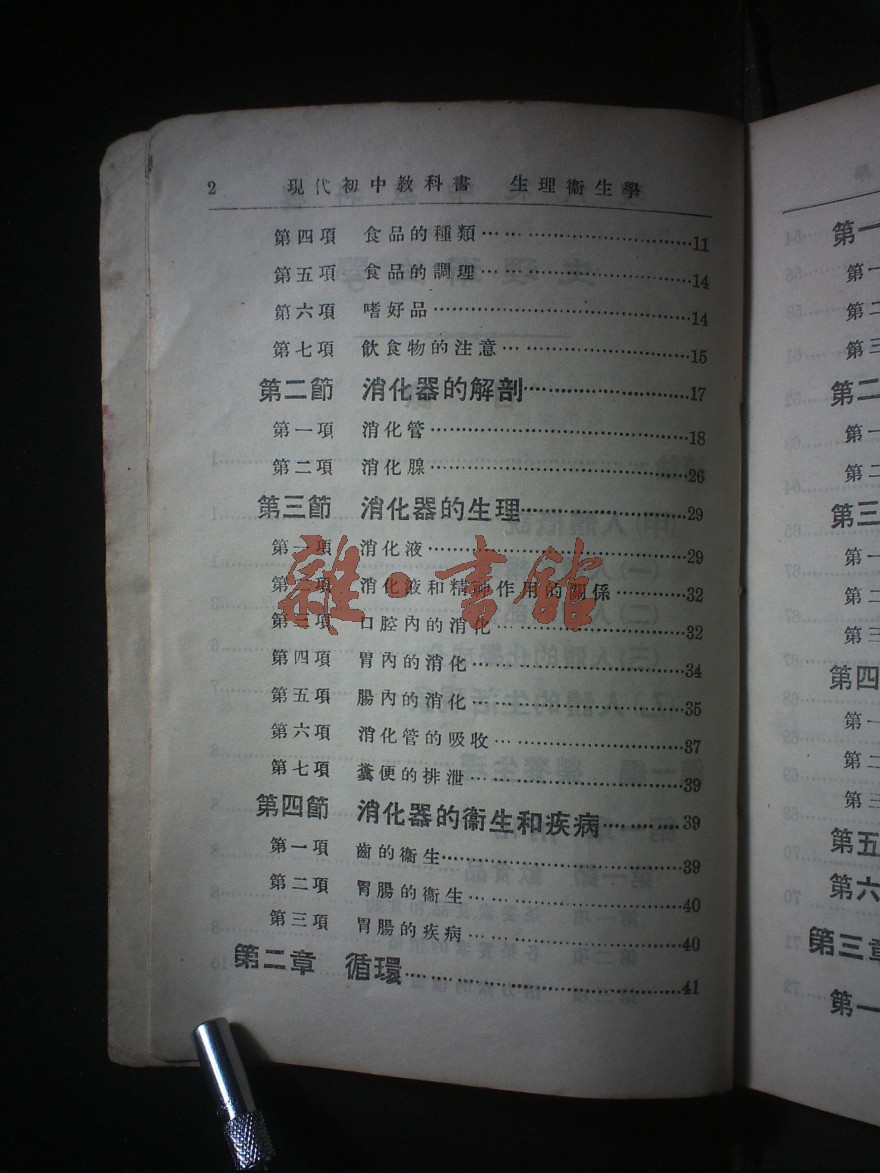 2 現代初中教科書 生理衞生學
第四項 食品的種類……………………………11
第五項 食品的調理……………………………14
第六項 嗜好品…………………………………14
第七項 飲食物的注意…………………………15
第二節 消化器的解剖…………………………17
第一項 消化管…………………………………18
第二項 消化腺…………………………………26
第三節 消化器的生理…………………………29
第一項 消化液…………………………………29
第二項 消化液和精神作用的關係……………32
第三項 口腔內的消化…………………………32
第四項 胃內的消化……………………………34
第五項 腸內的消化……………………………35
第六項 消化管的吸收…………………………37
第七項 糞便的排泄……………………………39
第四節 消化器的衞生和疾病…………………39
第一項 齒的衞生………………………………39
第二項 胃腸的衞生……………………………40
第三項 胃腸的疾病……………………………40
第二章 循環……………………………………41
雜·書館
第一
第一
第二
第三
第二
第一
第二
第三
第一
第二
第三
第四
第一
第二
第三
第五
第六
第三章
第一